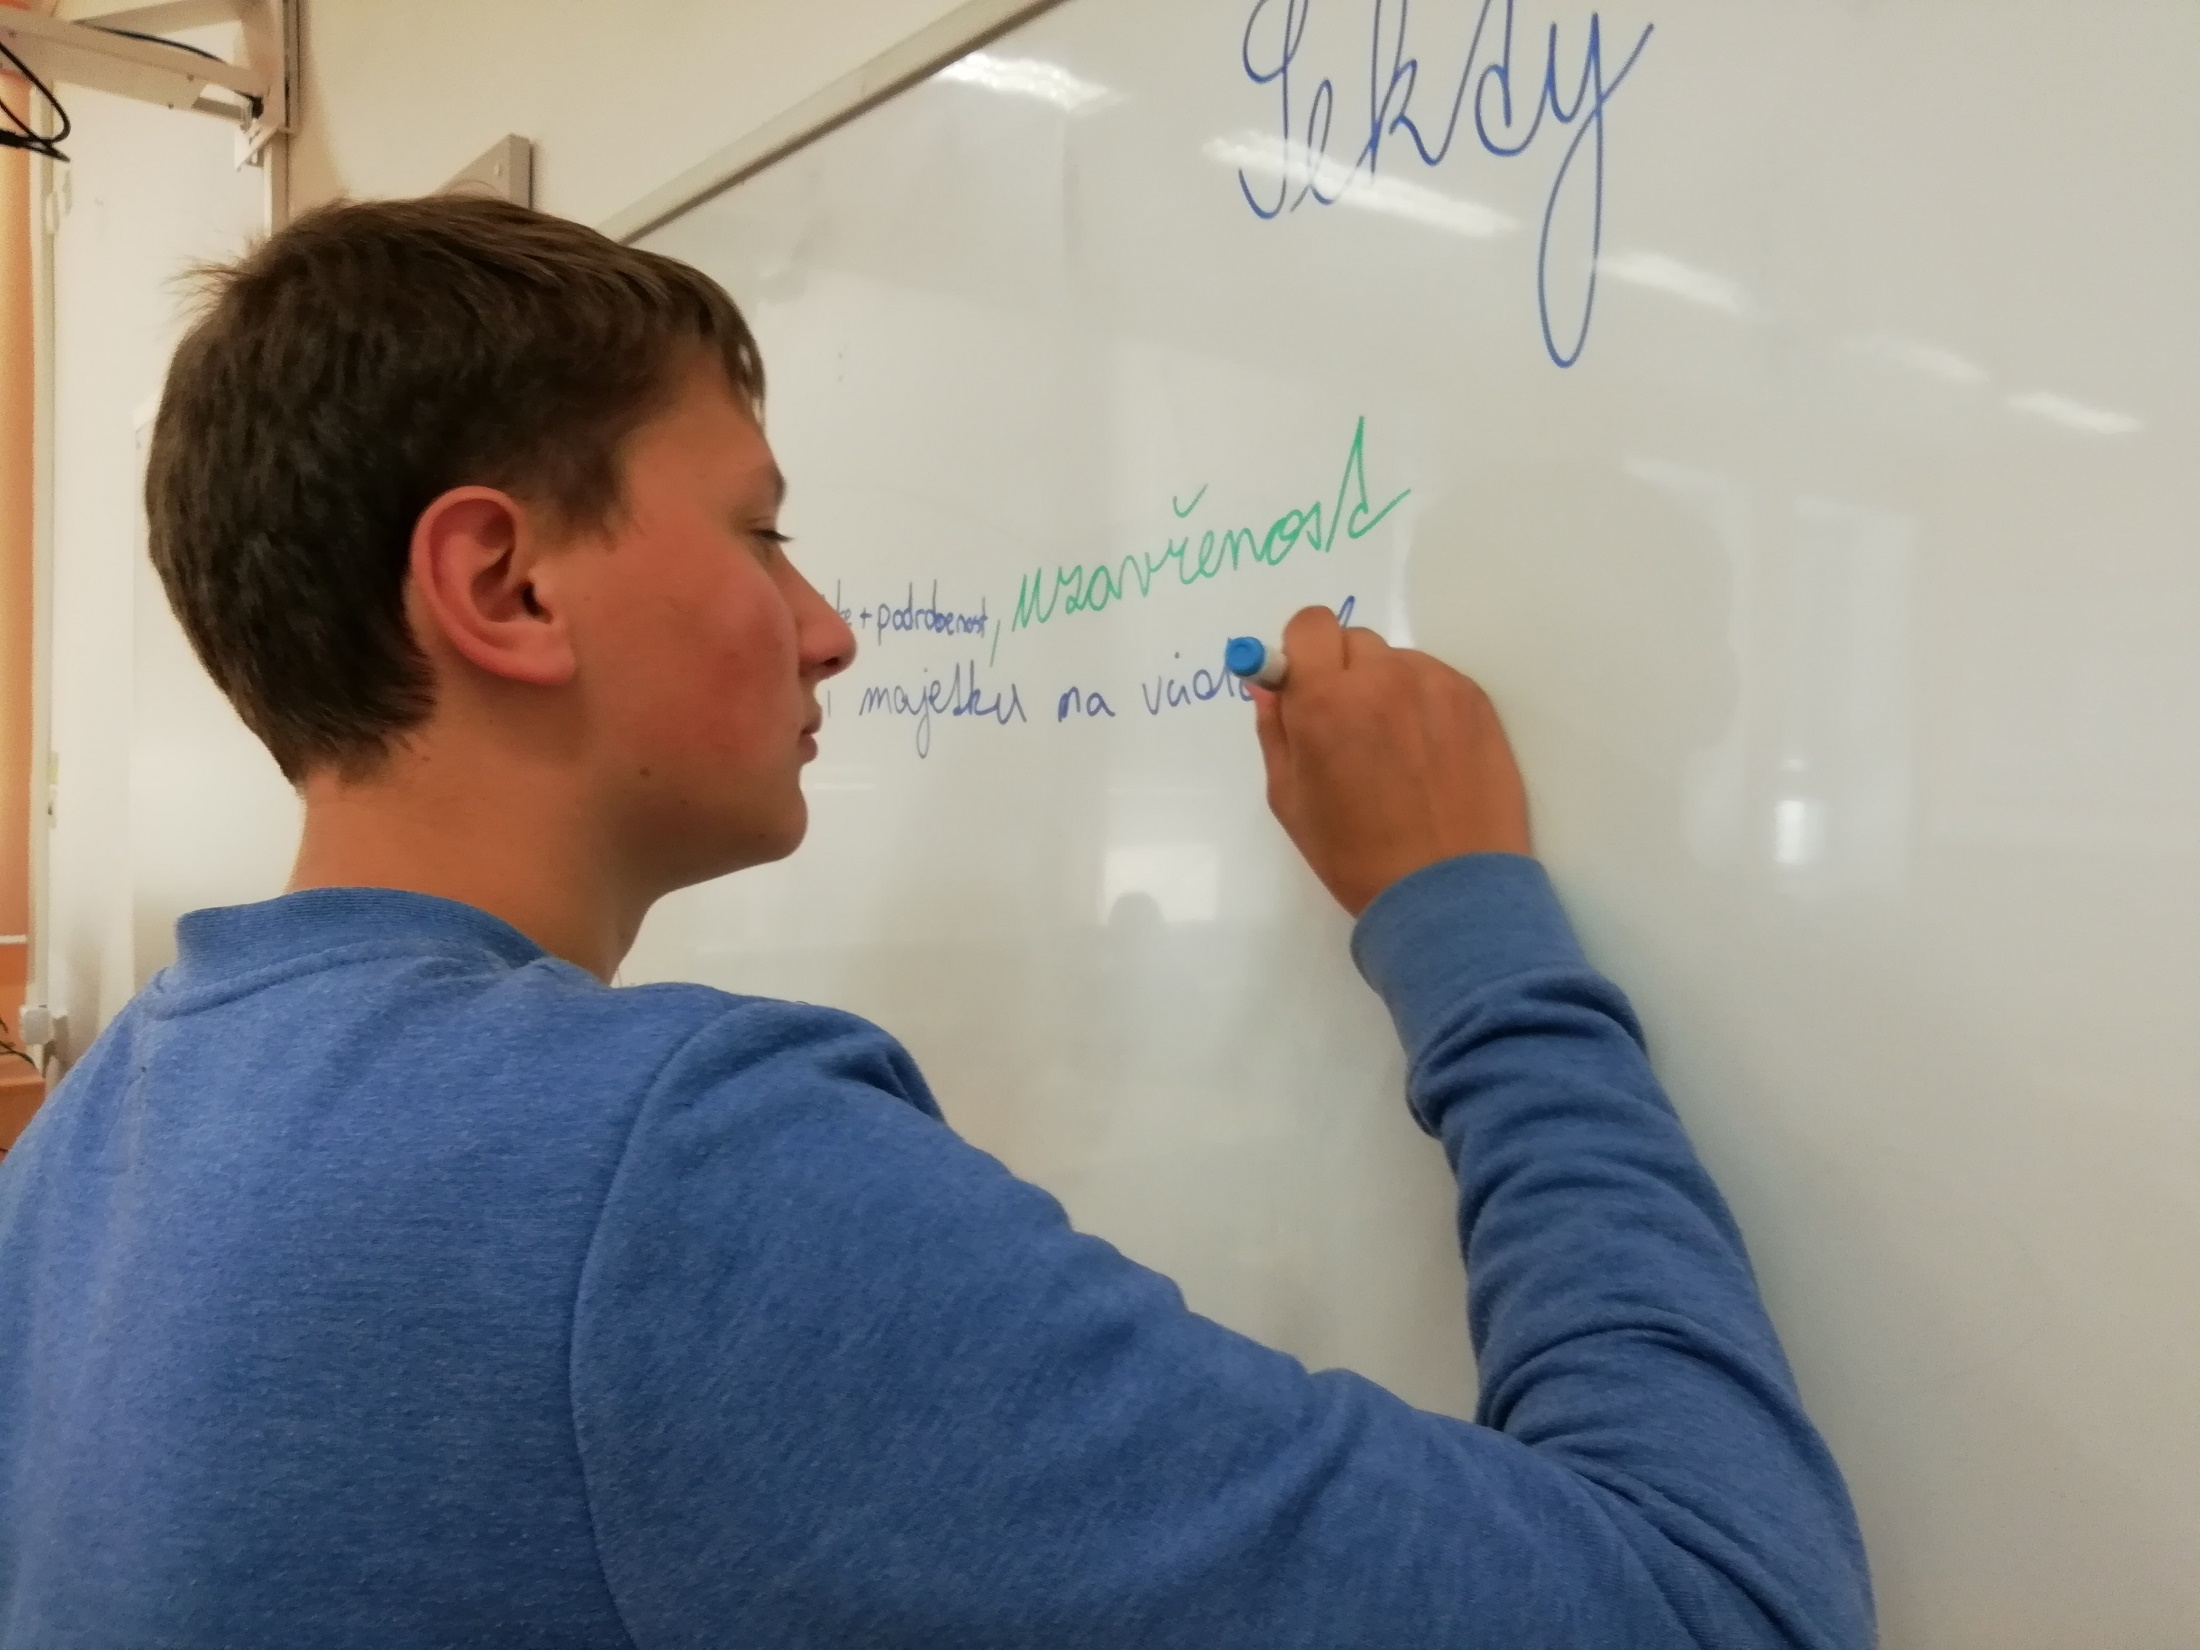 Sekty
+ podrobenost, uzavřenost
majetku na